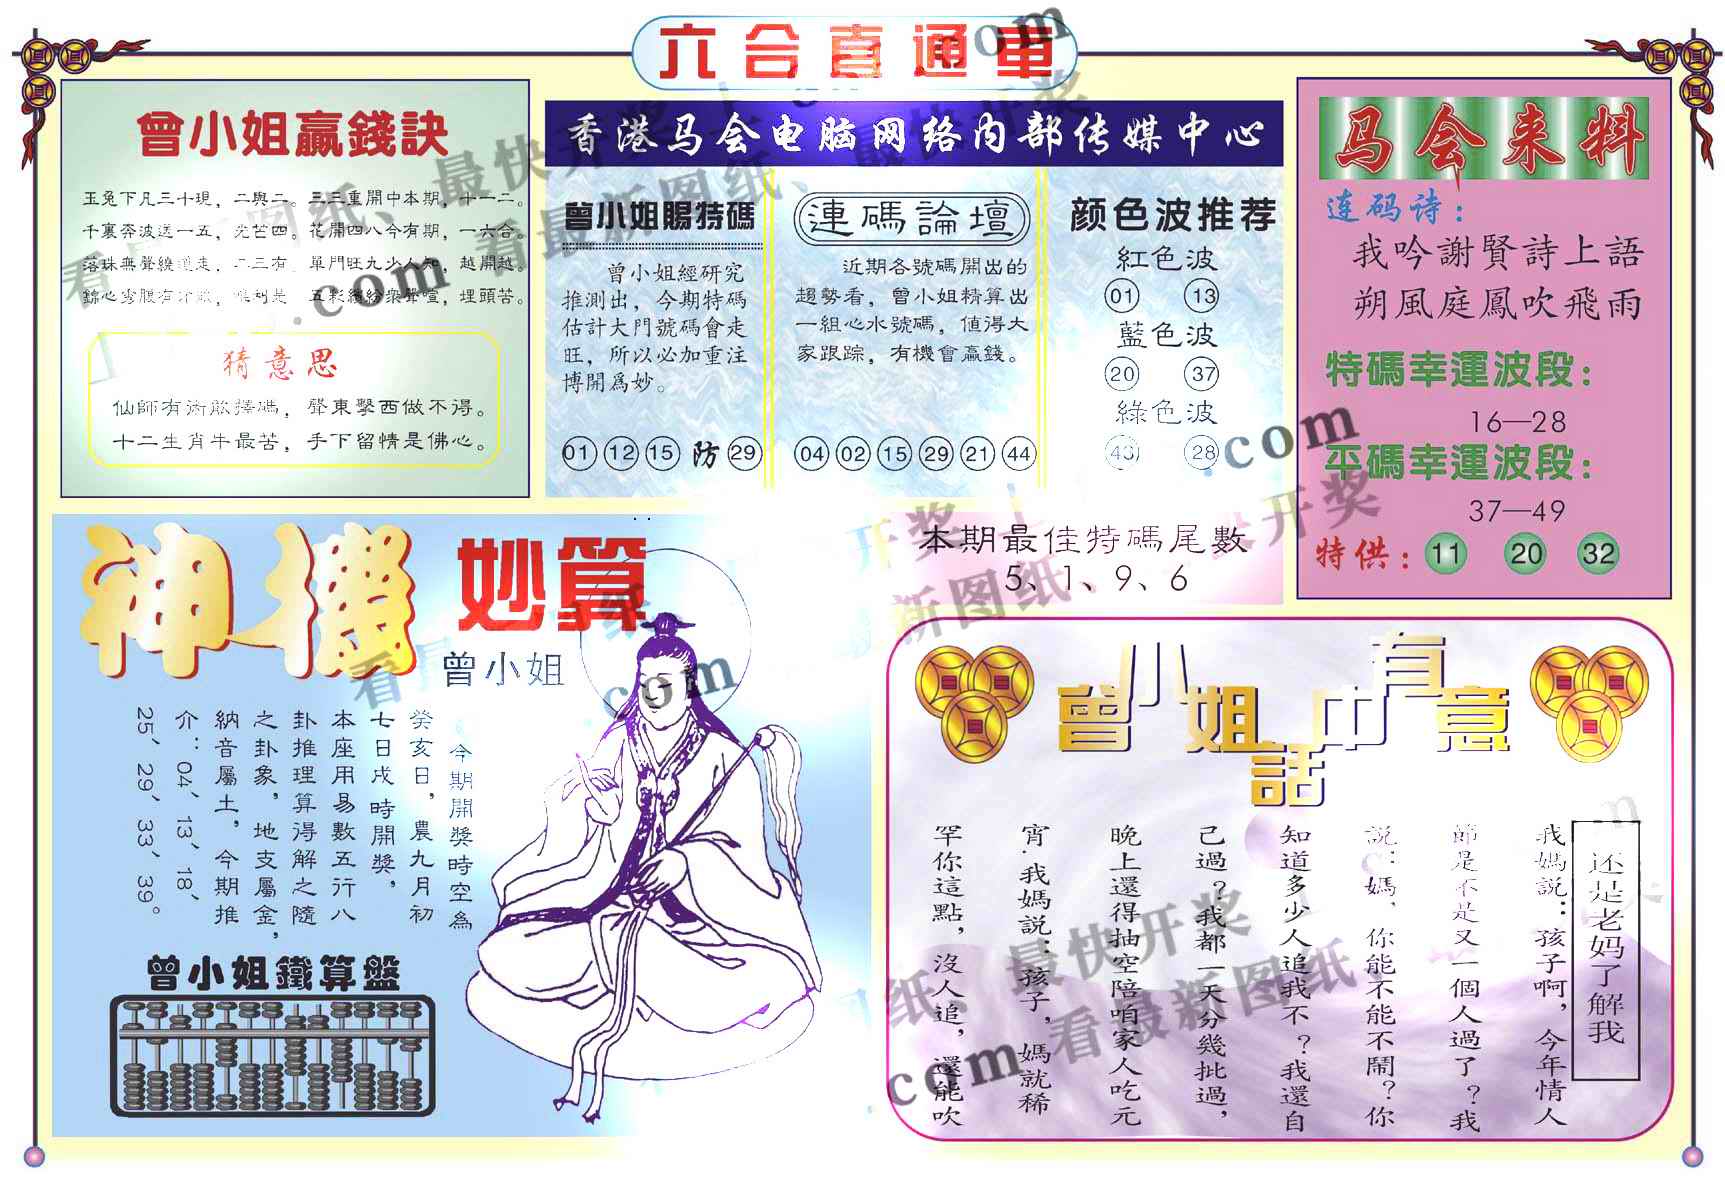 六合直通車
曾小姐贏錢訣
玉兔下凡三十現，二與二。三三重開中本期，十一二。
千裏奔波送一五，光苦四。花開四八今有期，一六合。
落珠無聲繞 走，二三有，單門旺九少人知，越開越。
錦心繡腹有 ， 是 五彩繽紛衆聲喧，埋頭苦。
猜意思
仙師有術敢擇碼，聲東擊西做不得。
十二生肖牛最苦，手下留情是佛心。
香港马会电脑网络内部传媒中心
曾小姐賜特碼
曾小姐經研究
推測出，今期特碼
估計大門號碼會走
旺，所以必加重注
博開爲妙。
01 12 15 防 29
連碼論壇
近期各號碼開出的
趨勢看，曾小姐精算出
一組心水號碼，值得大
家跟踪，有機會贏錢。
04 02 15 29 21 44
颜色波推荐
紅色波
01 13
藍色波
20 37
綠色波
43 28
马会来料
连码诗：
我吟謝賢詩上語
朔風庭鳳吹飛雨
特碼幸運波段：
16—28
平碼幸運波段：
37—49
特供： 11 20 32
本期最佳特碼尾數
5、1、9、6
神機妙算
曾小姐
今期開獎時空為
癸亥日，農九月初
七日戌時開獎，
本座用易數五行八
卦推理算得解之隨
之卦象，地支屬金，
納音屬土，今期推
介：04、13、18、
25、29、33、39。
曾小姐鐵算盤
曾小姐話中有意
还是老妈了解我
我媽説：孩子啊，今年情人
節是不是又一個人過了？我
説：媽，你能不能不鬧？你
知道多少人追我不？我還自
己過？我都一天分幾批過，
晚上還得抽空陪咱家人吃元
宵.我媽説：孩子，媽就稀
罕你這點，沒人追，還能吹
看最新图纸、最快开奖上
.com